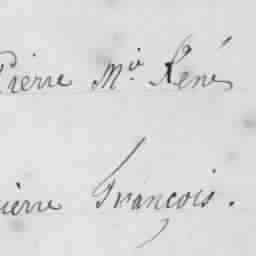 Pierre M.ie René
Pierre François.